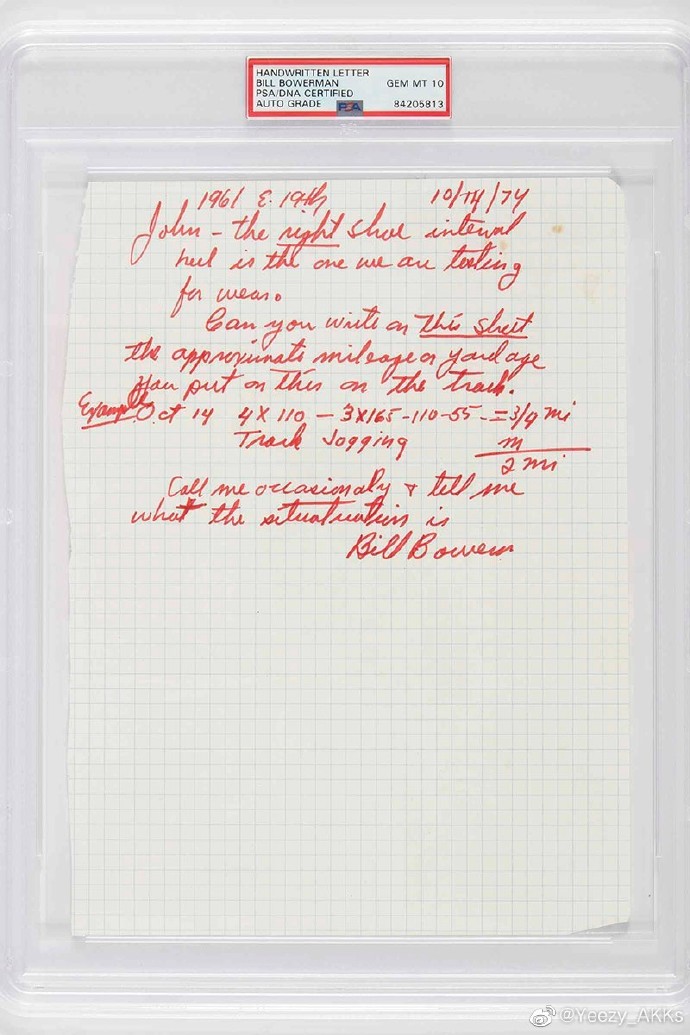 HANDWRITTEN LETTER
BILL BOWERMAN GEM MT 10
PSA/DNA CERTIFIED
AUTO GRADE PSA 84205813
1961 E. 19th 10/14/74
John - the right shoe internal
heel is the one we are testing
for wear.
Can you write on this sheet
the approximate mileage or yardage
you put on this on the track.
Example Oct 14 4 X 110 - 3X165-110-55-=3/4 mi
Track Jogging m
2 mi
Call me occasionaly & tell me
what the situatuation is
Bill Bowerm
@Yeezy_AKKs